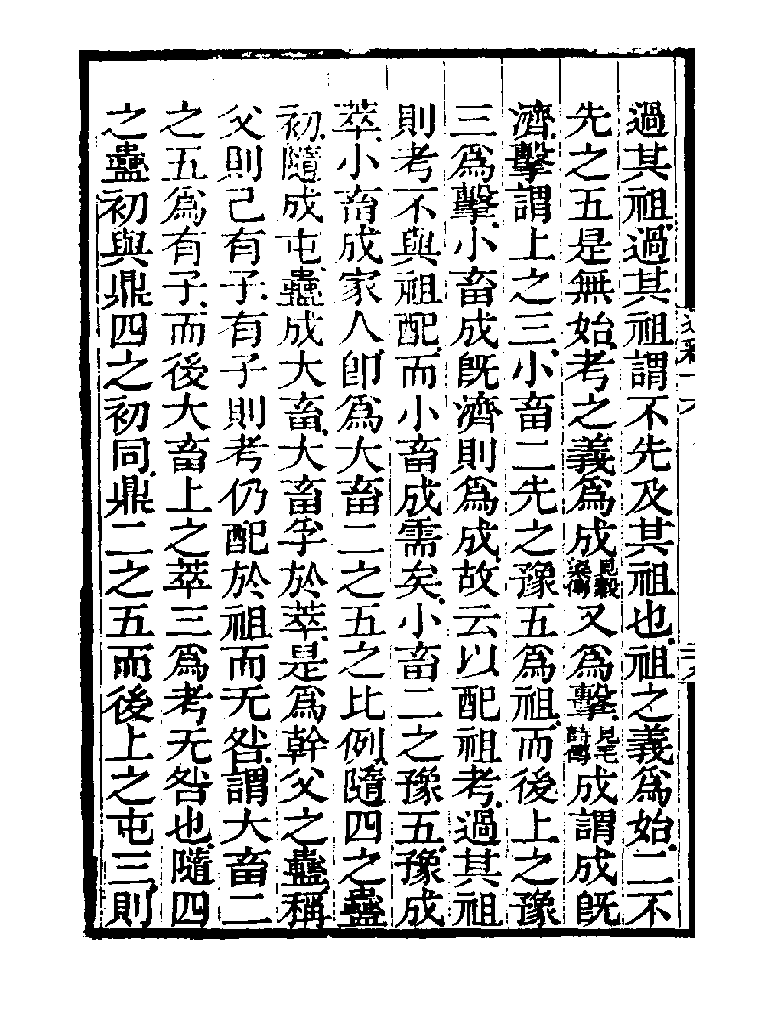 過其祖過其祖謂不先及其祖也祖之義爲始二不
先之五是無始考之義爲成見穀梁傳又爲擊見毛詩傳成謂成旣
濟擊謂上之三小畜二先之豫五爲祖而後上之豫
三爲擊小畜成旣濟則爲成故云以配祖考過其祖
則考不與祖配而小畜成需矣小畜二之豫五豫成
萃小畜成家人卽爲大畜二之五之比例隨四之蠱
初隨成屯蠱成大畜大畜孚於萃是爲幹父之蠱稱
父則己有子有子則考仍配於祖而无咎謂大畜二
之五爲有子而後大畜上之萃三爲考无咎也隨四
之蠱初與鼎四之初同鼎二之五而後上之屯三則